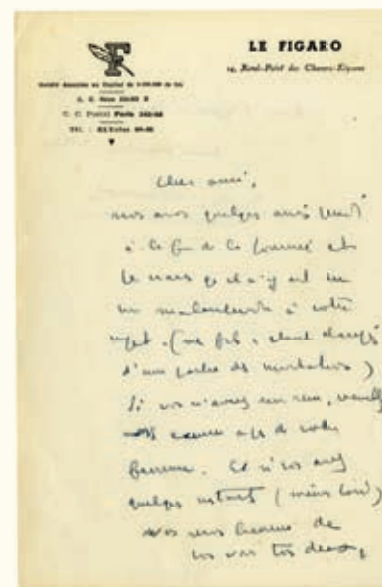 F
LE FIGARO
14, Rond-Point des Champs-Élysées
Société Anonyme au Capital de
R. C. Seine
C. C. Postal Paris
Tél. : ÉLYsées
Cher ami,
nous avons quelques amis
à la fin de la journée et
je crains qu'il n'y ait eu
un malentendu à votre
sujet. (mon fils, étant chargé
d'une partie des invitations)
Si vous n'avez rien reçu, veuillez
excuser
femme. Et si vous avez
quelques instants (même tard)
nous serons heureux de
vous voir tous deux,